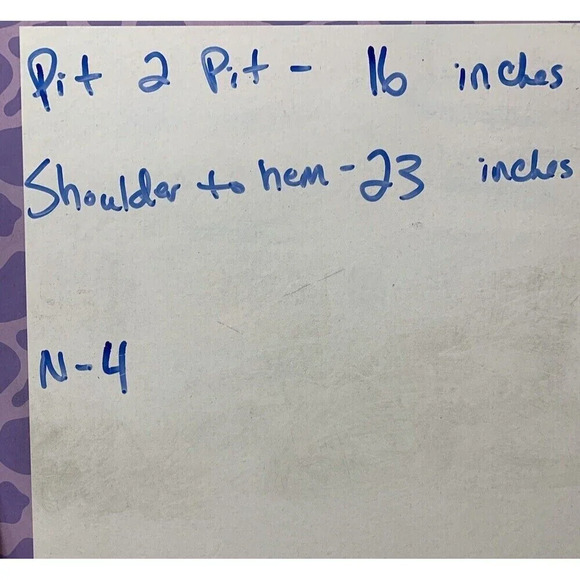 Pit 2 Pit - 16 inches
Shoulder to hem - 23 inches
N-4